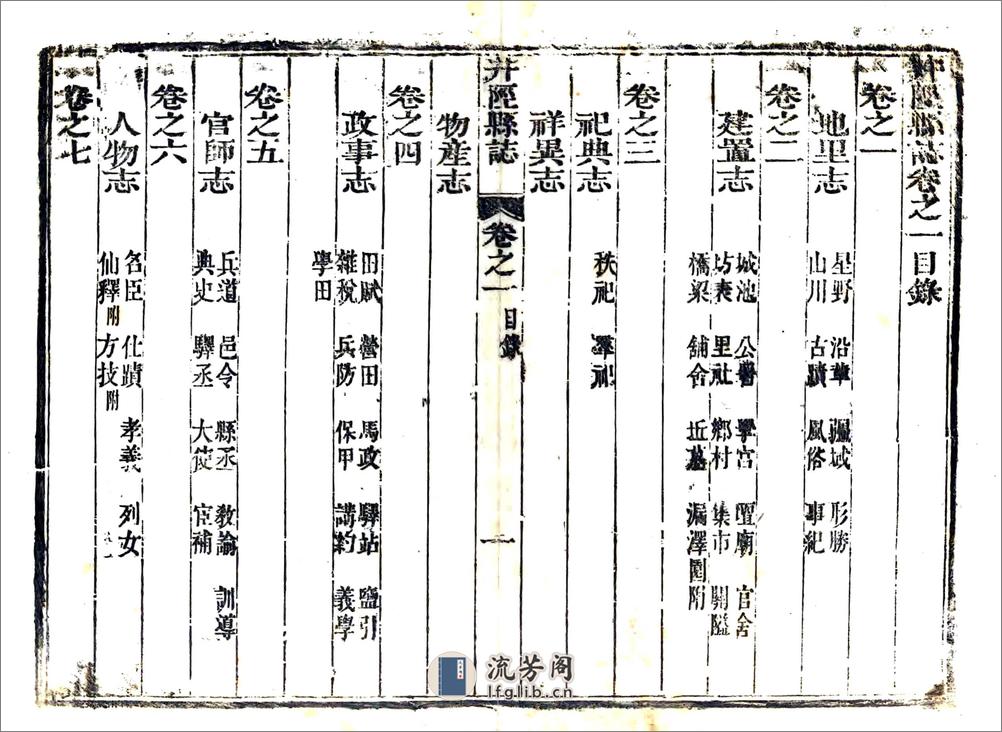 井陘縣誌卷之一目錄
卷之一
地里志
星野 沿革 疆域 形勝
山川 古蹟 風俗 事紀
卷之二
建置志
城池 公署 學宮 壇廟 官舍
坊表 里社 鄉村 集市 關隘
橋梁 舖舍 丘墓 漏澤園附
卷之三
祀典志
秩祀 羣祀
祥異志
井陘縣誌 卷之一 目錄 一
物產志
卷之四
政事志
田賦 營田 馬政 驛站 鹽引
雜稅 兵防 保甲 講約 義學
學田
卷之五
官師志
兵道 邑令 縣丞 教諭 訓導
典史 驛丞 大使 宦補
卷之六
人物志
名臣 仕蹟 孝義 列女
仙釋附 方技附
卷之七
流芳阁
lfglib.cn